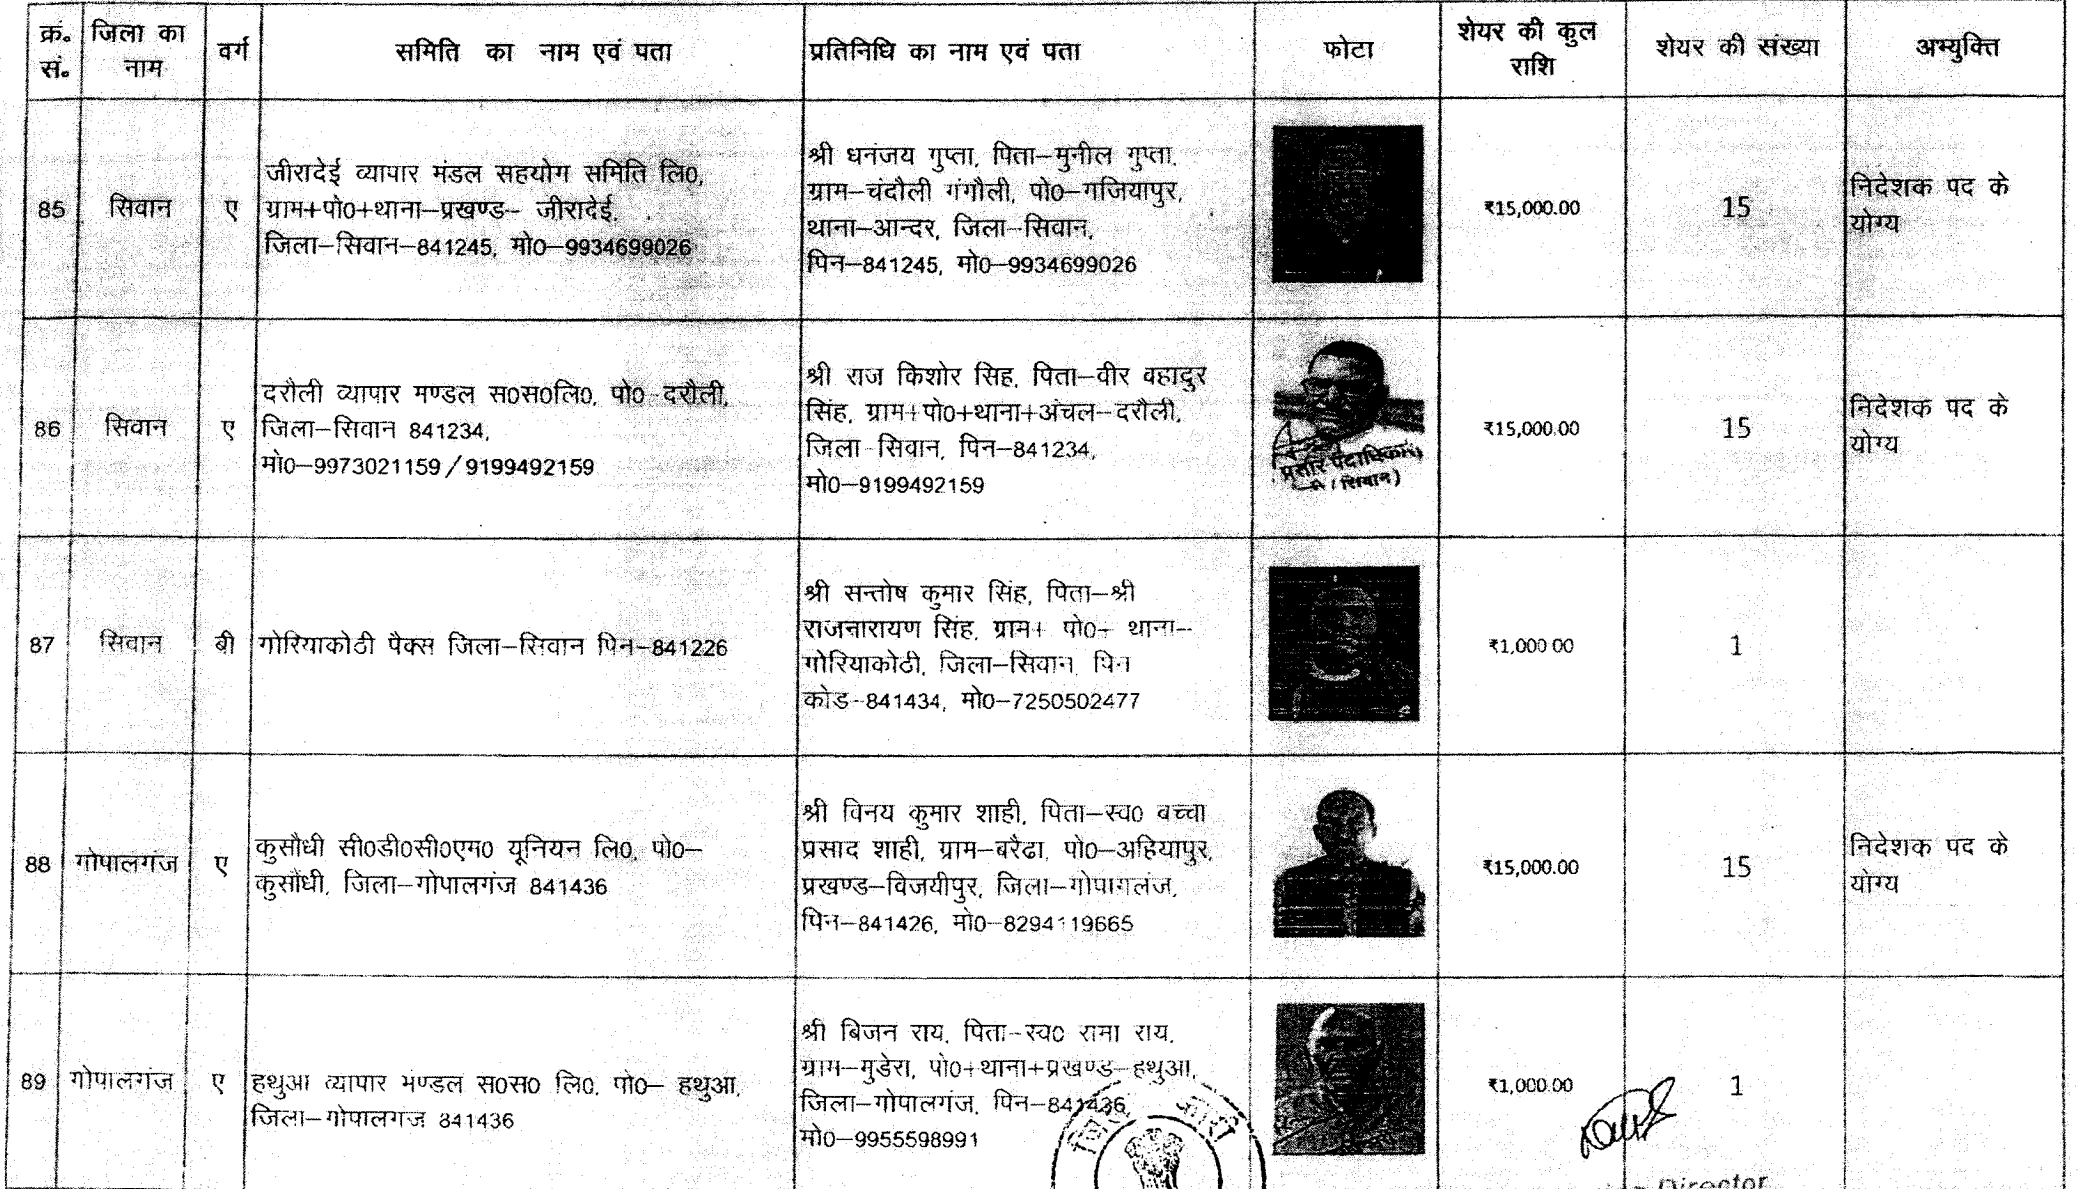 क्रं. जिला का वर्ग समिति का नाम एवं पता प्रतिनिधि का नाम एवं पता फोटा शेयर की कुल शेयर की संख्या अभ्युक्ति
सं. नाम राशि
85 सिवान ए
जीरादेई व्यापार मंडल सहयोग समिति लि0,
ग्राम+पो0+थाना–प्रखण्ड– जीरादेई,
जिला–सिवान–841245, मो0–9934699026
श्री धनंजय गुप्ता, पिता–मुनील गुप्ता,
ग्राम–चंदौली गंगौली, पो0–गजियापुर,
थाना–आन्दर, जिला–सिवान,
पिन–841245, मो0–9934699026
₹15,000.00 15
निदेशक पद के
योग्य
86 सिवान ए
दरौली व्यापार मण्डल स0स0लि0, पो0–दरौली,
जिला–सिवान 841234,
मो0–9973021159/9199492159
श्री राज किशोर सिह, पिता–वीर वहादुर
सिंह, ग्राम+पो0+थाना+अंचल–दरौली,
जिला–सिवान, पिन–841234,
मो0–9199492159
प्रसार पदाधिकारी
(सिवान)
₹15,000.00 15
निदेशक पद के
योग्य
87 सिवान बी
गोरियाकोठी पैक्स जिला–सिवान पिन–841226
श्री सन्तोष कुमार सिंह, पिता–श्री
राजनारायण सिंह, ग्राम+ पो0+ थाना–
गोरियाकोठी, जिला–सिवान, पिन
कोड–841434, मो0–7250502477
₹1,000.00 1
88 गोपालगंज ए
कुसौधी सी0डी0सी0एम0 यूनियन लि0, पो0–
कुसौधी, जिला–गोपालगंज 841436
श्री विनय कुमार शाही, पिता–स्व0 बच्चा
प्रसाद शाही, ग्राम–बरैढा, पो0–अहियापुर,
प्रखण्ड–विजयीपुर, जिला–गोपागलंज,
पिन–841426, मो0–8294119665
₹15,000.00 15
निदेशक पद के
योग्य
89 गोपालगंज ए
हथुआ व्यापार मण्डल स0स0 लि0, पो0– हथुआ,
जिला–गोपालगंज 841436
श्री बिजन राय, पिता–स्व0 रामा राय,
ग्राम–मुडेरा, पो0+थाना+प्रखण्ड–हथुआ,
जिला–गोपालगंज, पिन–841436,
मो0–9955598991
₹1,000.00 1
Director